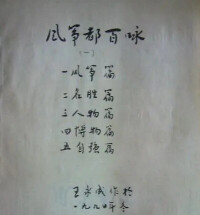 风筝都百咏
(一)
一 风筝篇
二 名胜篇
三 人物篇
四 博物篇
五 自强篇
王 作於
一九九〇年春